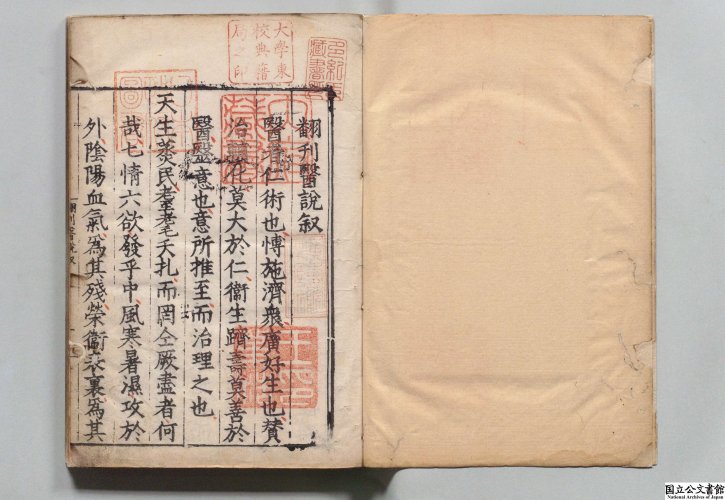 翻刊醫說叙
醫者仁術也愽施濟衆廣好生也賛
治化莫大於仁衞生躋壽莫善於
醫醫意也意所推至而治理之也
天生蒸民耋耄夭扎而罔仝厥盡者何
哉七情六欲發乎中風寒暑濕攻於
外陰陽血氣為其殘榮衞表裏為其
翻刊醫說叙
大學東
校典籍
局之印
国立公文書館
National Archives of Japan